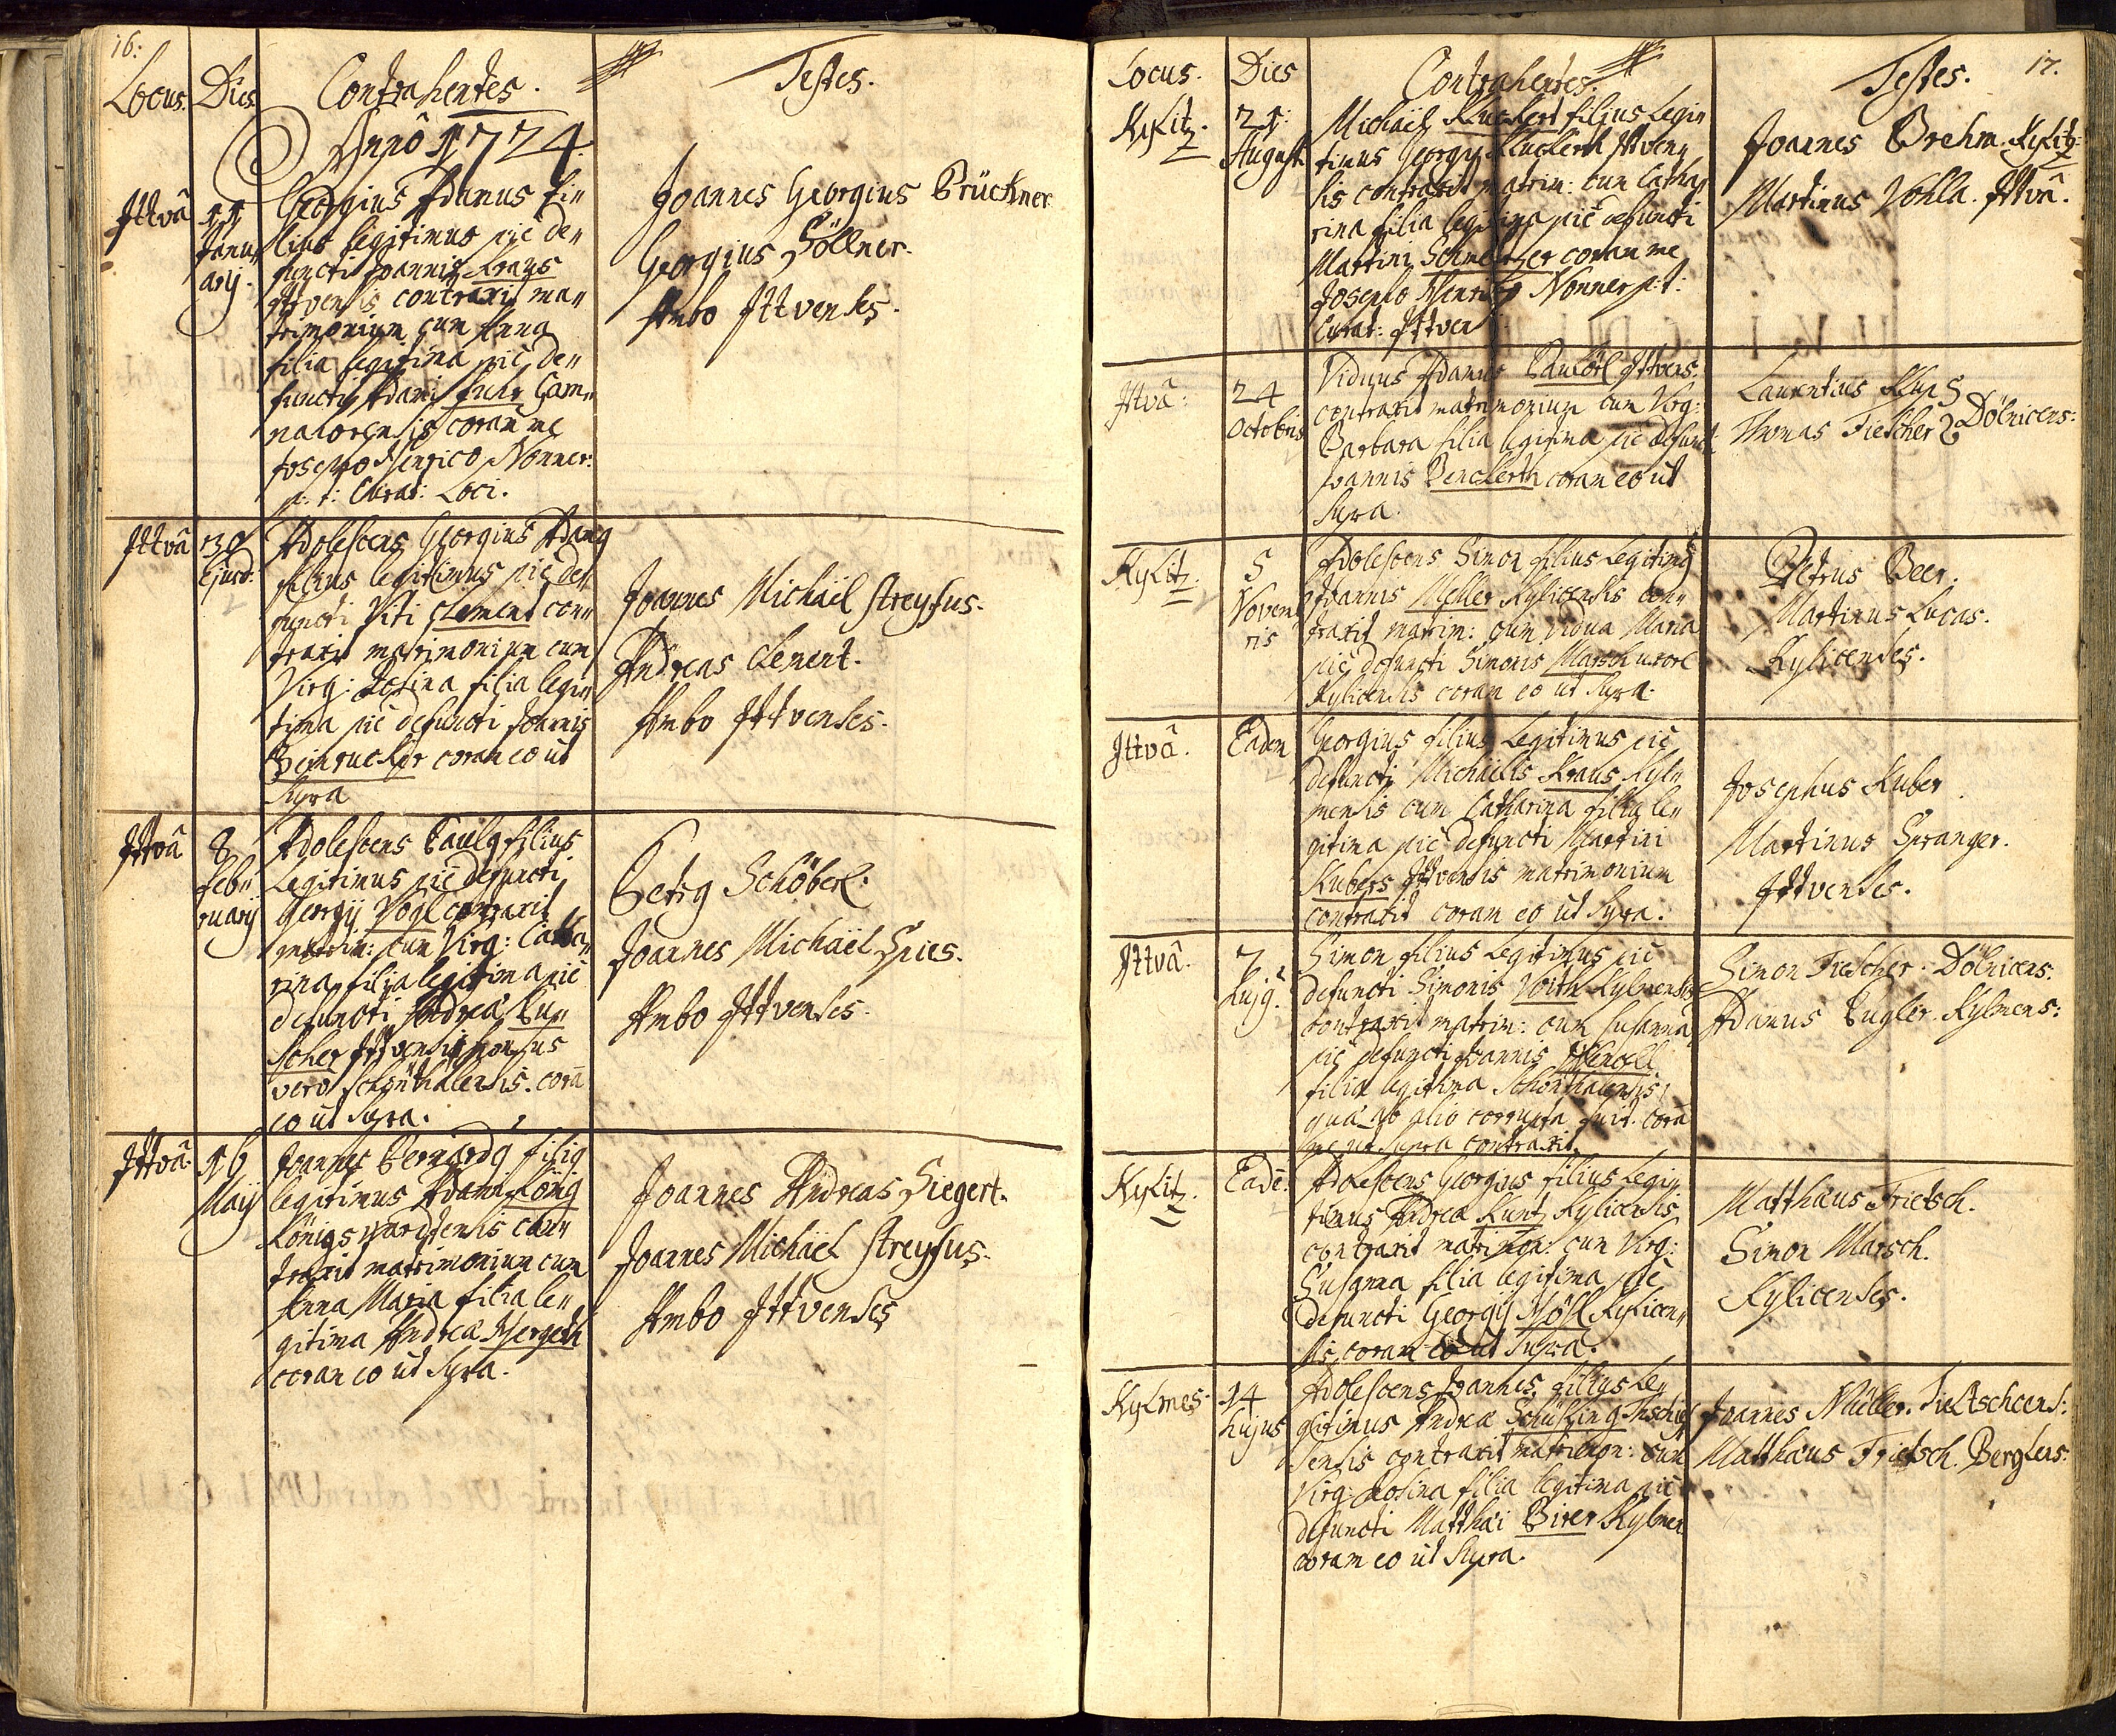 16:
Locus. Dies. Contrahentes. Testes.
Anno 1724.
Ittvâ
11
Janu„
arij.
Georgius Adamus fi„
lius legitimus piè de„
functi Joannis Kraus
Ittvensis contraxit ma„
trimonium cum Anna
filia legitima piè de„
functi Adami Fuhr
coram me
Josepho Henrico Nonner.
p: t: Curat: Loci.
Joannes Georgius Brückner
Georgius Söllner.
Ambo Ittvenses.
Ittvâ
30
Ejusd:
Adolescens Georgius Adamg
filius legitimus piè de„
functi Viti Clement con„
traxit matrimonium cum
Virg: Rosina filia legi„
tima piè defuncti Joannis
coram eo ut
supra
Joannes Michaël Streysus.
Andreas Clement.
Ambo Ittvenses.
Ittvâ
8
Feb„
ruarij
Adolescens Paulg filius
Legitimus piè defuncti
Georgij Vogl contraxit
matrim: cum Virg: Catha„
rina filia legitima piè
defuncti Andreæ Ru„
scher Ittvensis
vero Schönthalensis. corā
eo ut supra.
Petrg Schöberl.
Joannes Michaël Spies.
Ambo Ittvenses.
Ittvâ.
16
Maij
Joannes Bernardg filig
legitimus Adami König
Königswardtensis con„
traxit matrimonium cum
Anna Maria filia le„
gitima Andreæ Hergeth
coram eo ut supra.
Joannes Andreas Siegert.
Joannes Michaël Streysus.
Ambo Ittvenses
17.
Locus. Dies Contrahentes. Testes.
Kylitz.
21:
Augusti
Michaël Kluckert filius Legi„
timus Georgij Kluckerth Ittven„
sis contraxit matrim: cum Catha„
rina filia legitima piè defuncti
Martini Schmeltzer coram me
Josepho Henrico Nonner p: t:
Curat: Ittven
Joannes Brehm. Kylitz.
Martinus Vohla. Ittvâ.
Ittvâ:
24
Octobris
Viduus Adamus Bauköl Ittvens.
contraxit matrimonium cum Virg:
Barbara filia legitima piè defunct:
Joannis Benckerth coram eo ut
supra.
Laurentius
Thomas Fischer Dölnicens:
Kylitz.
5
Novemb
ris
Adolescens Simon filius Legitimg
Joannis Meller Kylicensis con„
traxit matrim: cum Vidua Maria
piè defuncti Simonis Marsch uxore
Kylicensis coram eo ut supra.
Petrus Beer.
Martinus Lucas.
Kylicenses.
Ittvâ.
Eadem
Georgius filius Legitimus piè
defuncti Michaëlis Kraus Kyl„
mensis cum Catharina filia le„
gitima piè defuncti Martini
Kubers Ittvensis matrimonium
contraxit coram eo ut supra.
Josephus Kuber
Martinus Spranger.
Ittvenses.
Ittvâ.
7
hujg.
Simon filius Legitimus piè
defuncti Simonis Voith Kylmensis
contraxit matrim: cum Susanna
piè defuncti Joannis
filia legitima Schönthalensis
quæ ab alio corrupta fuit. corā
me ut supra contraxit.
Simon Fischer. Dölnicens:
Adamus Bugler. Kylmens:
Kylitz.
Eadē.
Adolescens Georgius filius Legi„
timus Andreæ Kuntz Kylicensis
contraxit matrimon: cum Virg:
Susanna filia legitima piè
defuncti Georgij Hösl Kylicen„
sis coram eo ut supra.
Matthæus Frietsch.
Simon Marsch.
Kylicenses.
Kylmes.
14
hujus
Adolescens Joannes filius Le„
gitimus Andreæ Schüsling
sensis contraxit matrimon: cum
Virg: Rosina filia legitima piè
defuncti Matthæi Birer Kylmen
coram eo ut supra.
Joannes Müller. Fieltschcens:
Matthæus Frietsch. Berglens: